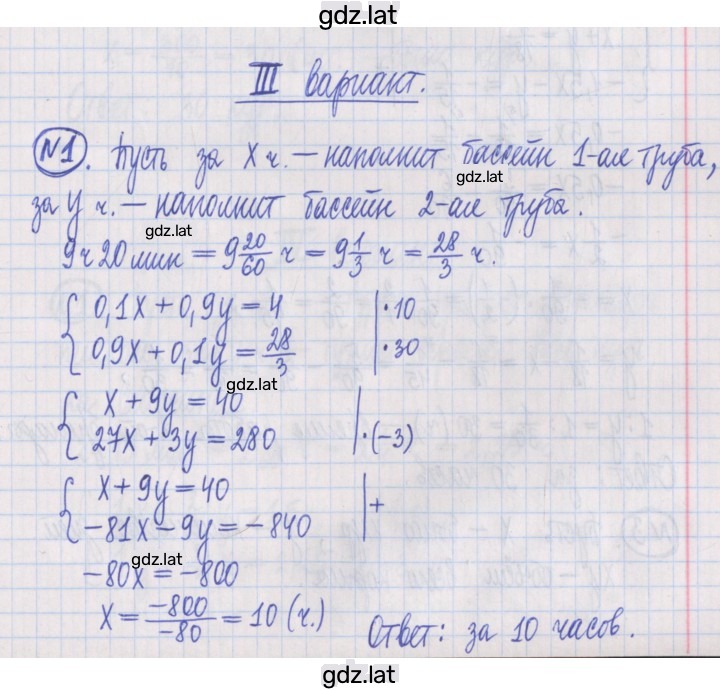 gdz.lat
III вариант.
№1. Пусть за x ч. — наполнит бассейн 1-ая труба,
gdz.lat
за y ч. — наполнит бассейн 2-ая труба.
gdz.lat
9ч 20 мин = 9 20/60 ч = 9 1/3 ч = 28/3 ч.
{ 0,1x + 0,9y = 4 | · 10
0,9x + 0,1y = 28/3 | · 30
gdz.lat
{ x + 9y = 40
27x + 3y = 280 | · (-3)
gdz.lat
{ x + 9y = 40 | +
-81x - 9y = -840
gdz.lat
-80x = -800
x = -800/-80 = 10 (ч.)
Ответ: за 10 часов.
gdz.lat
gdz.lat